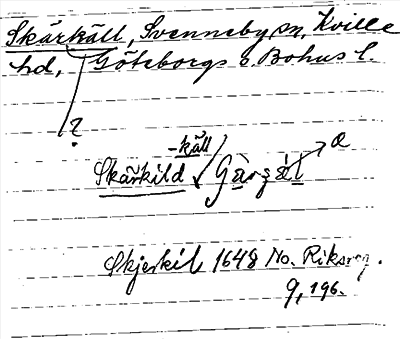 Skärkäll, Svenneby sn, Kville
hd, Göteborgs o. Bohus l.
?
-käll
Skärkild Gärzäl a
Skjerkil 1648 No. Riksreg.
9, 196.